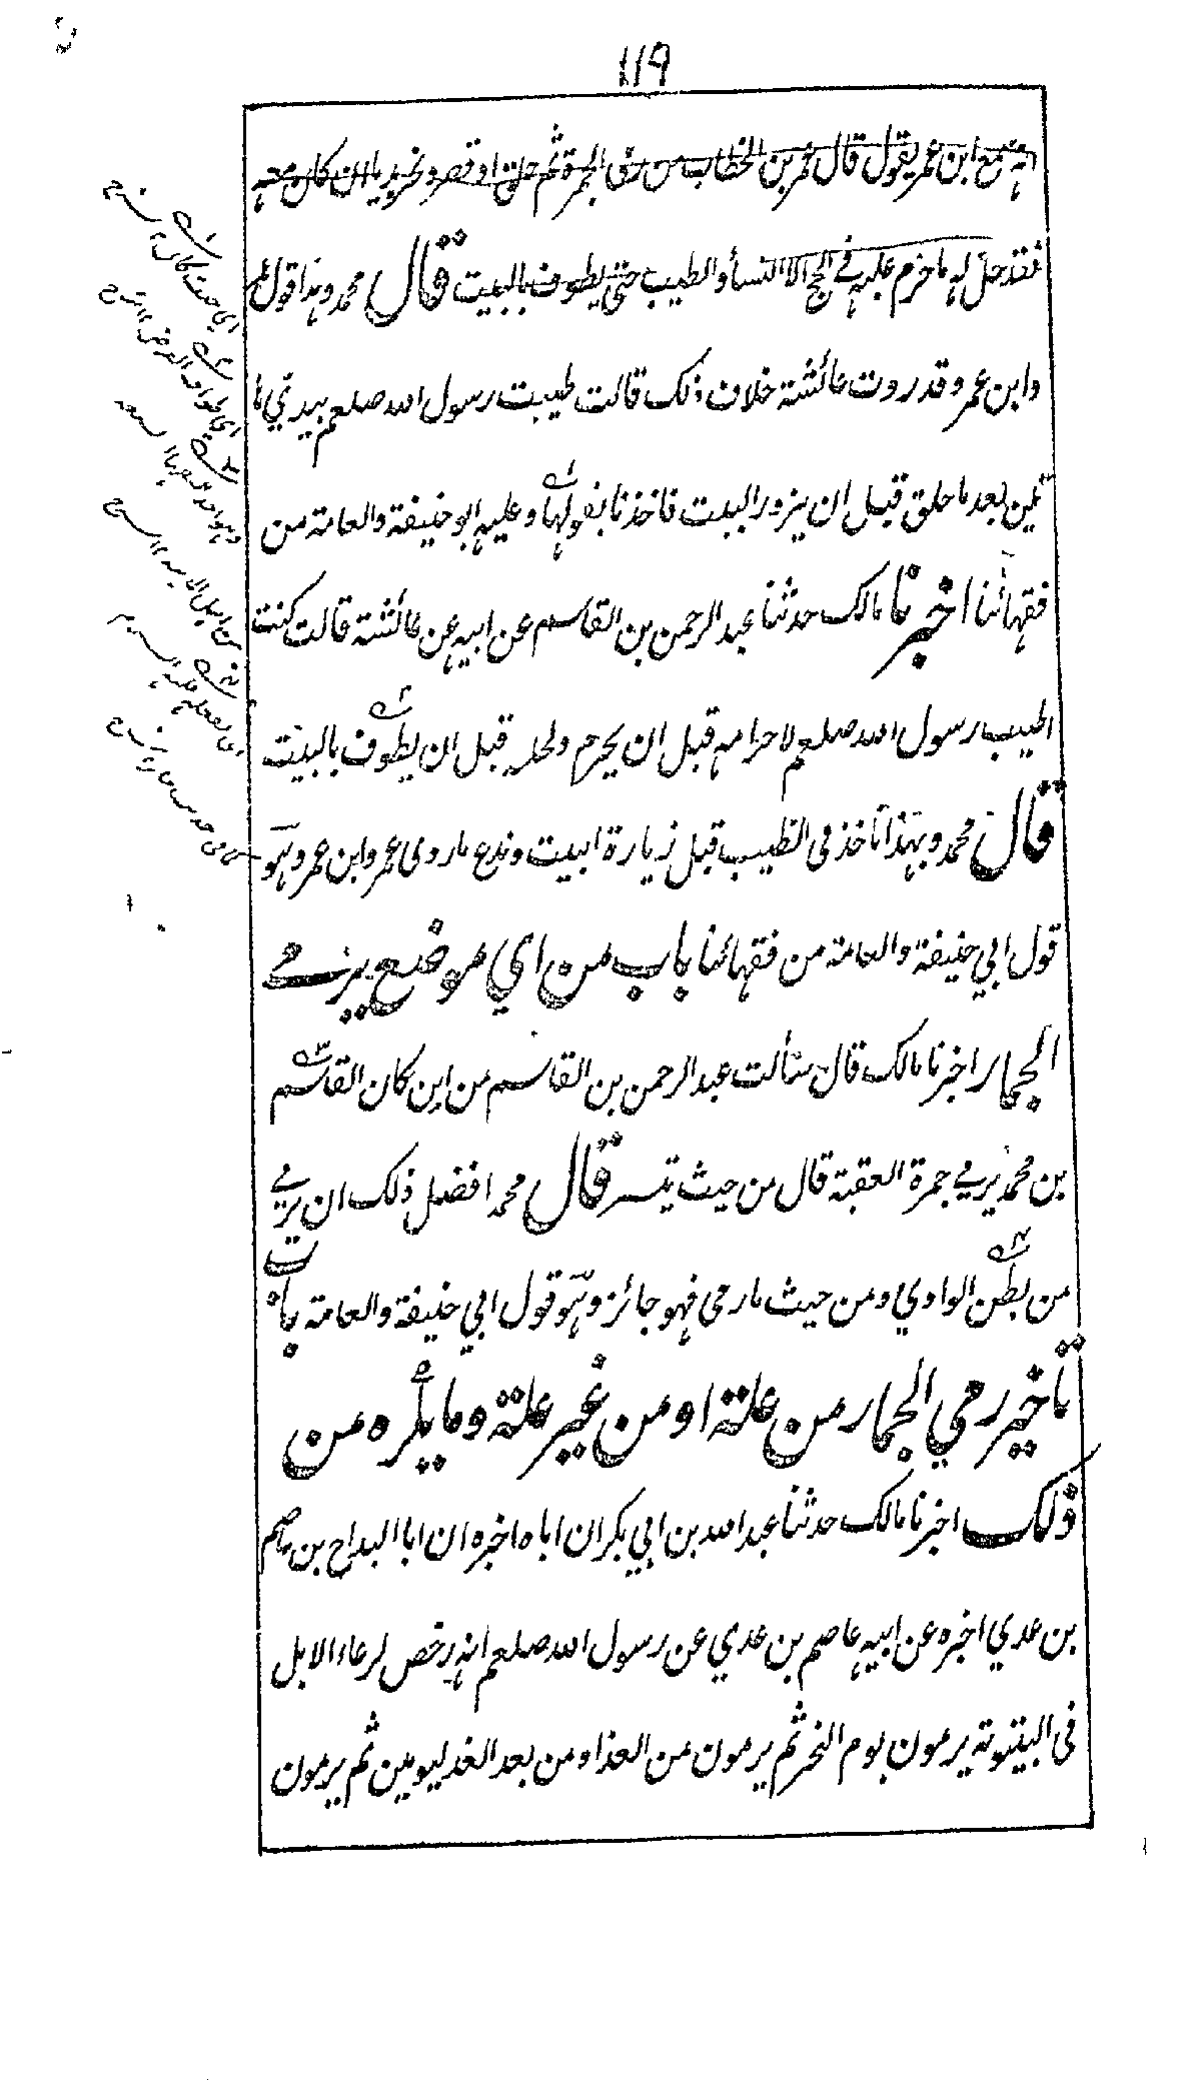 ١١٩
انه سمع ابن عمر يقول قال عمر بن الخطاب من رمى الجمرة ثم حلق او قصر ونحر هديا ان كان معه
فقد حل له ما حرم عليه في الحج الا النسأ والطيب حتى يطوف بالبيت قال محمد وهذا قول عمر
وابن عمر وقد روت عائشة خلاف ذلك قالت طيبت رسول الله صلعم بيدي ها
تين بعد ما حلق قبل ان يزور البيت فاخذنا بقولها وعليه ابو حنيفة والعامة من
فقهائنا اخبرنا مالك حدثنا عبد الرحمن بن القاسم عن ابيه عن عائشة قالت كنت
اطيب رسول الله صلعم لاحرامه قبل ان يحرم ولحله قبل ان يطوف بالبيت
قال محمد وبهذا ناخذ في الطيب قبل زيارة البيت وندع ما روى عمر وابن عمر وهو
قول ابي حنيفة والعامة من فقهائنا باب من اي موضع يرمي
الجمار اخبرنا مالك قال سألت عبد الرحمن بن القاسم من اين كان القاسم
بن محمد يرمي جمرة العقبة قال من حيث تيسر قال محمد افضل ذلك ان يرمي
من بطن الوادي ومن حيث ما رمى فهو جائز وهو قول ابي حنيفة والعامة باب
تاخير رمي الجمار من علة او من غير علة وما يكره من
ذلك اخبرنا مالك حدثنا عبد الله بن ابي بكر ان اباه اخبره ان ابا البداح بن عاصم
بن عدي اخبره عن ابيه عاصم بن عدي عن رسول الله صلعم انه رخص لرعاء الابل
في البيتوتة يرمون يوم النحر ثم يرمون من الغد او من بعد الغد ليومين ثم يرمون